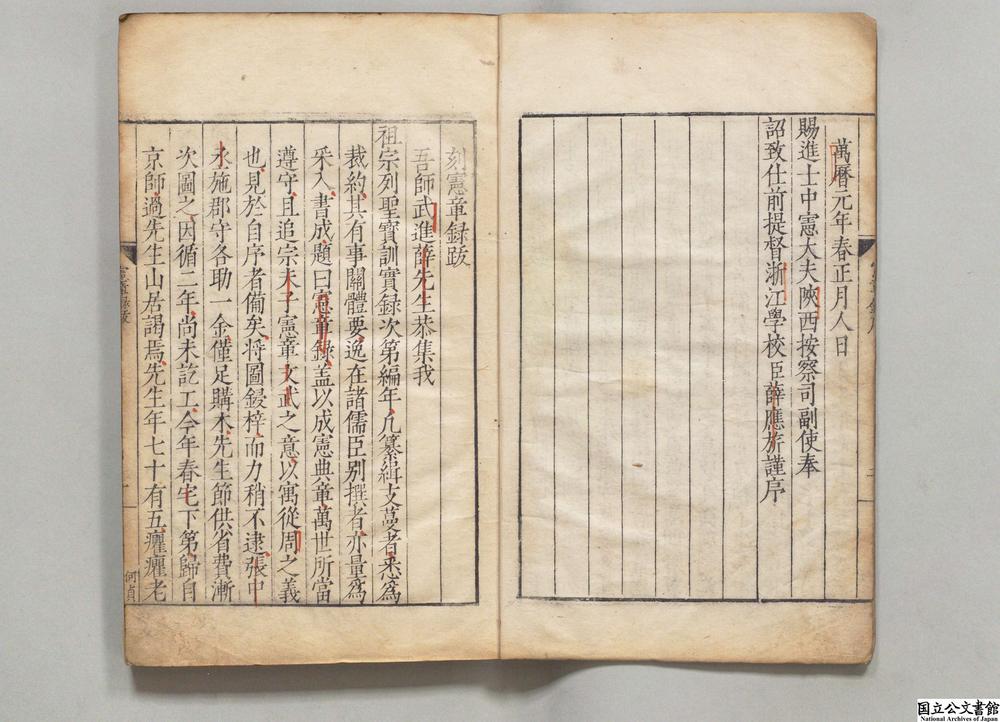 萬曆元年春正月人日
賜進士中憲大夫陝西按察司副使奉
詔致仕前提督浙江學校臣薛應旂謹序
刻憲章録跋
吾師武進薛先生恭集我
祖宗列聖寳訓實録次第編年凡纂緝支蔓者悉爲
裁約其有事關體要逸在諸儒臣别撰者亦量爲
采入書成題曰憲章録盖以成憲典章萬世所當
遵守且追宗夫子憲章文武之意以寓從周之義
也見於自序者備矣將圖鋟梓而力稍不逮張中
丞施郡守各助一金僅足購木先生節供省費漸
次圖之因循二年尚未訖工今年春宅下第歸自
京師過先生山居謁焉先生年七十有五癯癯老
憲章録跋
一
何貞
国立公文書館
National Archives of Japan